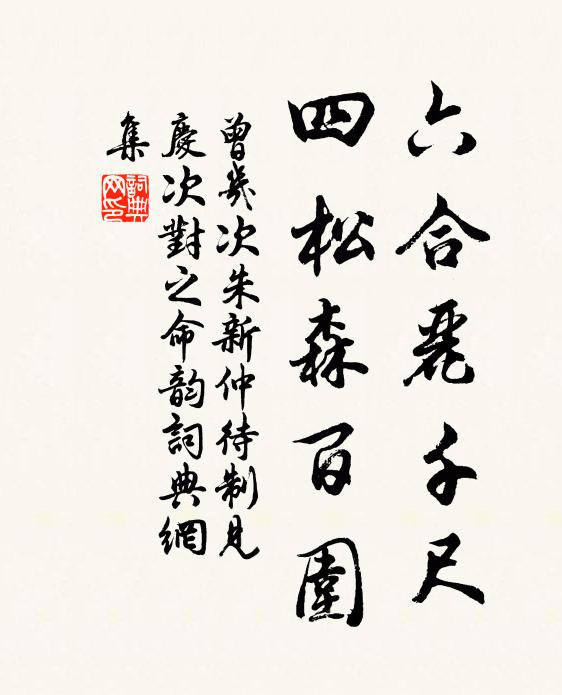 六合麗千尺
四松森百圍
曾幾次朱新仲待制見
慶次對之命韵詞典網
集
詞典
网印